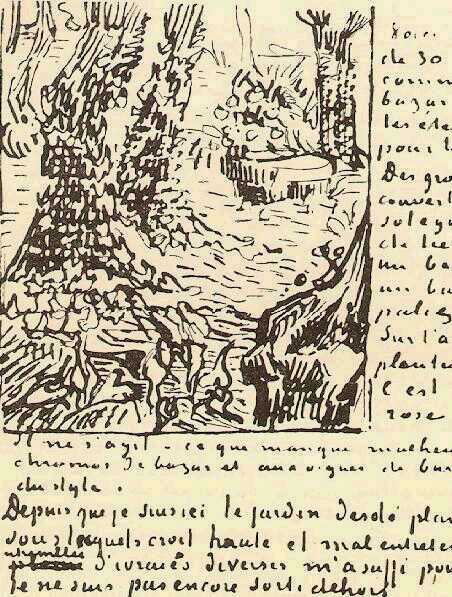 Voici
de 30
comm
bazar
les éte
pour l
Des gro
couvert
sol eg
de lie
un ba
un ba
palie
Sur l'a
plante
c est
rose
Il ne s'agit - ce que manque malheu
chromos de bazar et aux orgues de bar
du style.
Depuis que je suis ici le jardin desolé plan
sous lesquels croit haute et mal entrete
d'ivraies diverses m'a suffi pou
je ne suis pas encore sorti dehors